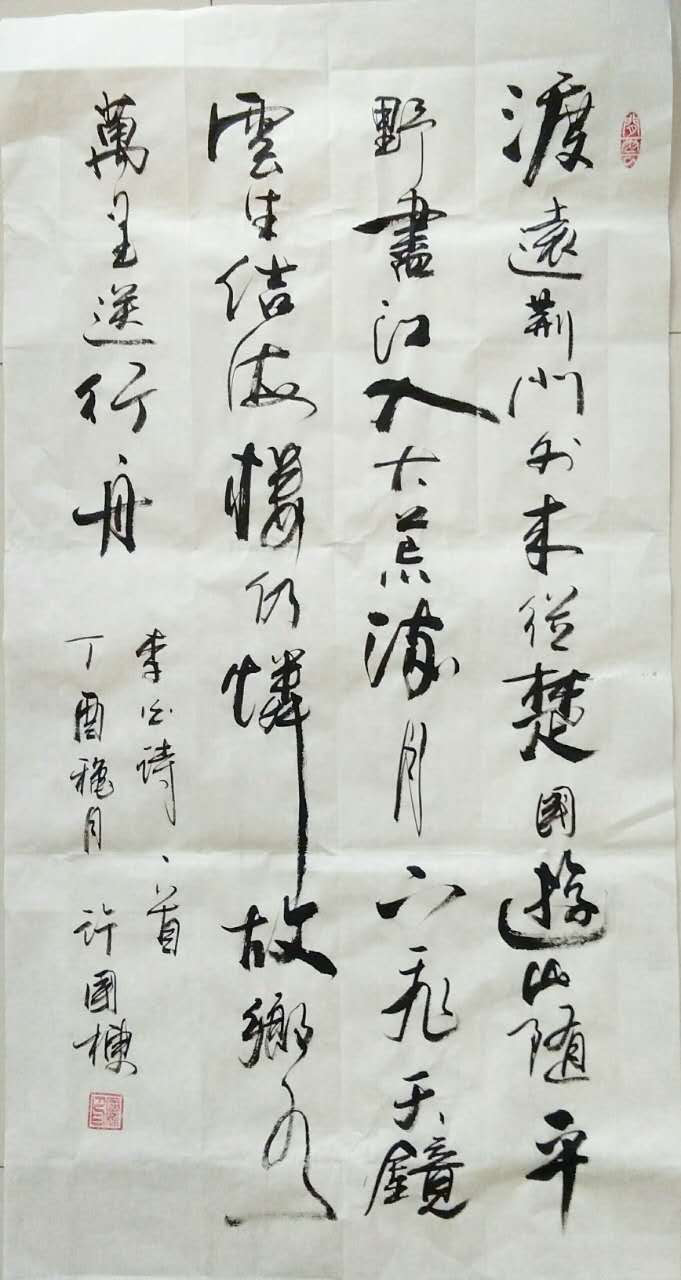 渡遠荆門外来從楚國遊山随平
野盡江入大荒流月下飛天鏡
雲生结海樓仍憐故鄉水
萬里送行舟
李白詩一首
丁酉穐月 許國棟